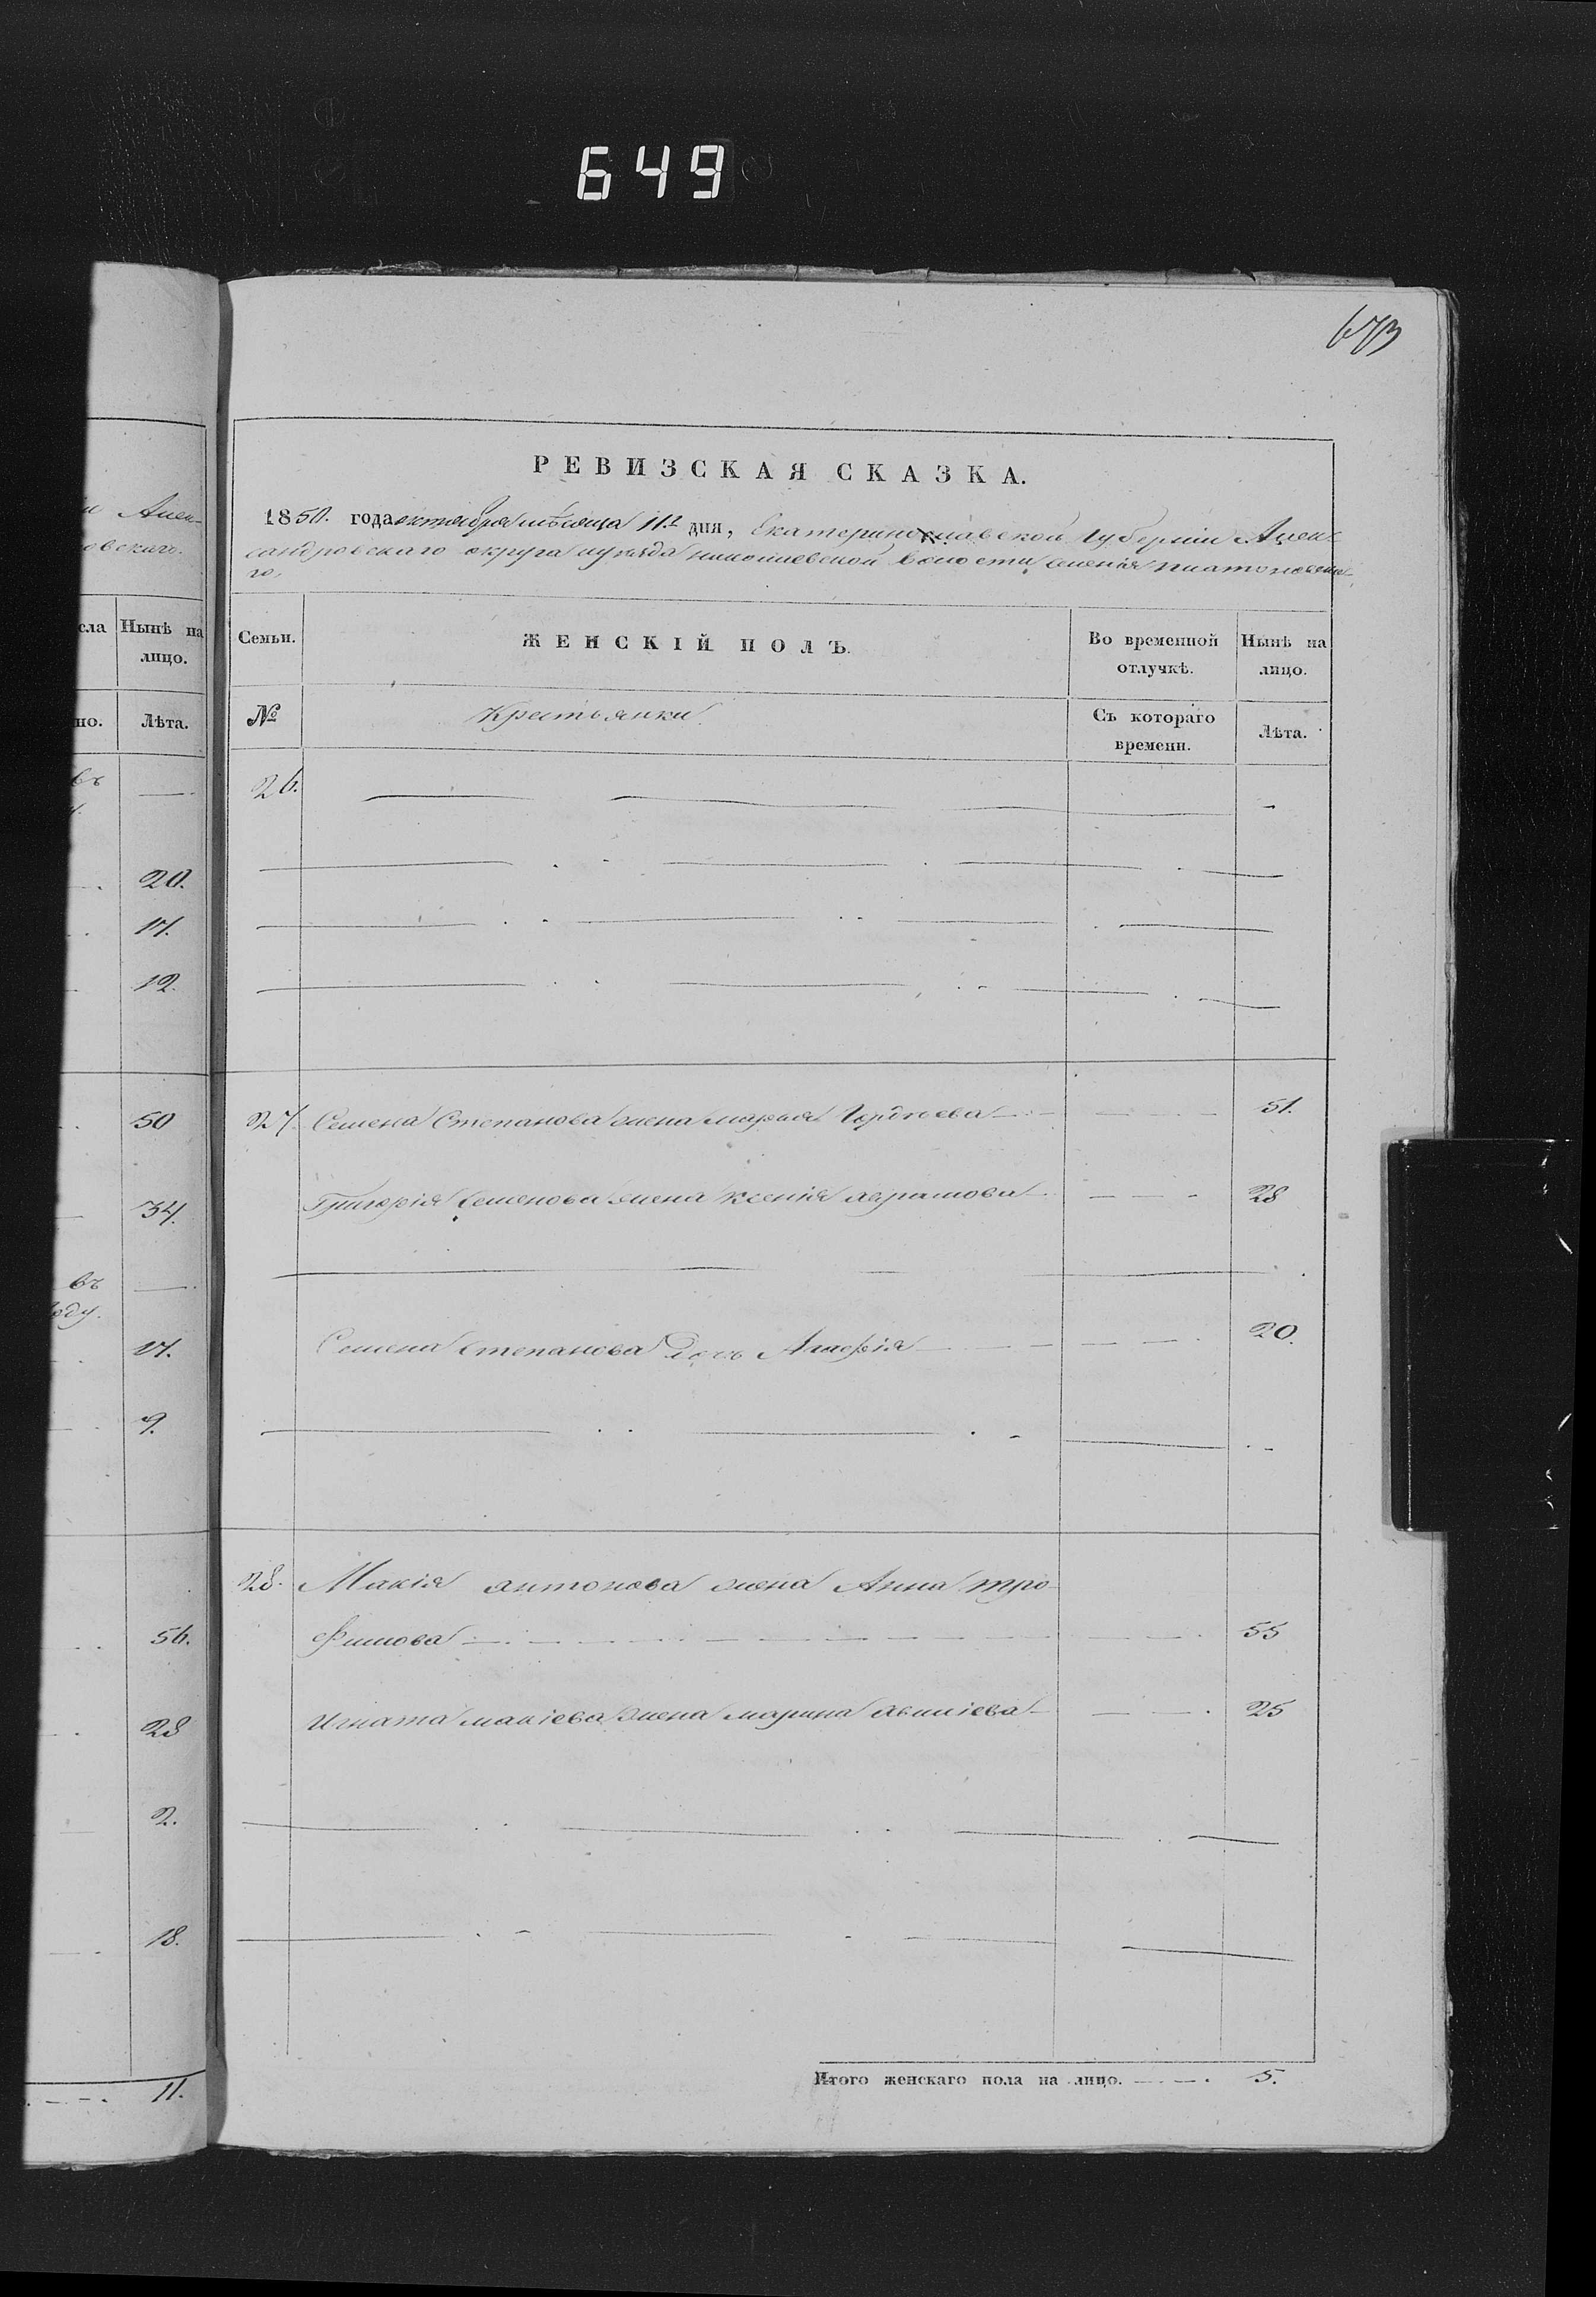 649
673
РЕВИЗСКАЯ СКАЗКА.
1850. года октября месяца 11го дня, Екатеринославской губернии Алек-
сандровскаго округа и уезда николаевской волости селения платоновска-
го,
и Алек-
овскаго.
сла Нынѣ на лицо.
но. Лѣта.
въ —
20.
17.
12.
50
34.
въ —
году.
17.
9.
56.
28
2.
18.
11.
Семьи. ЖЕНСКІЙ ПОЛЪ. Во временной отлучкѣ. Нынѣ на лицо.
№ Крестьянки. Съ котораго времени. Лѣта.
26.
27. Семена Степанова жена марья 51.
Григорія Семенова жена ксенія аврамова 28
Семена Степанова дочь 20.
28. Макія антонова жена Анна тро-
фимова 55
Игната макіева жена марина 25
Итого женскаго пола на лицо. 5.